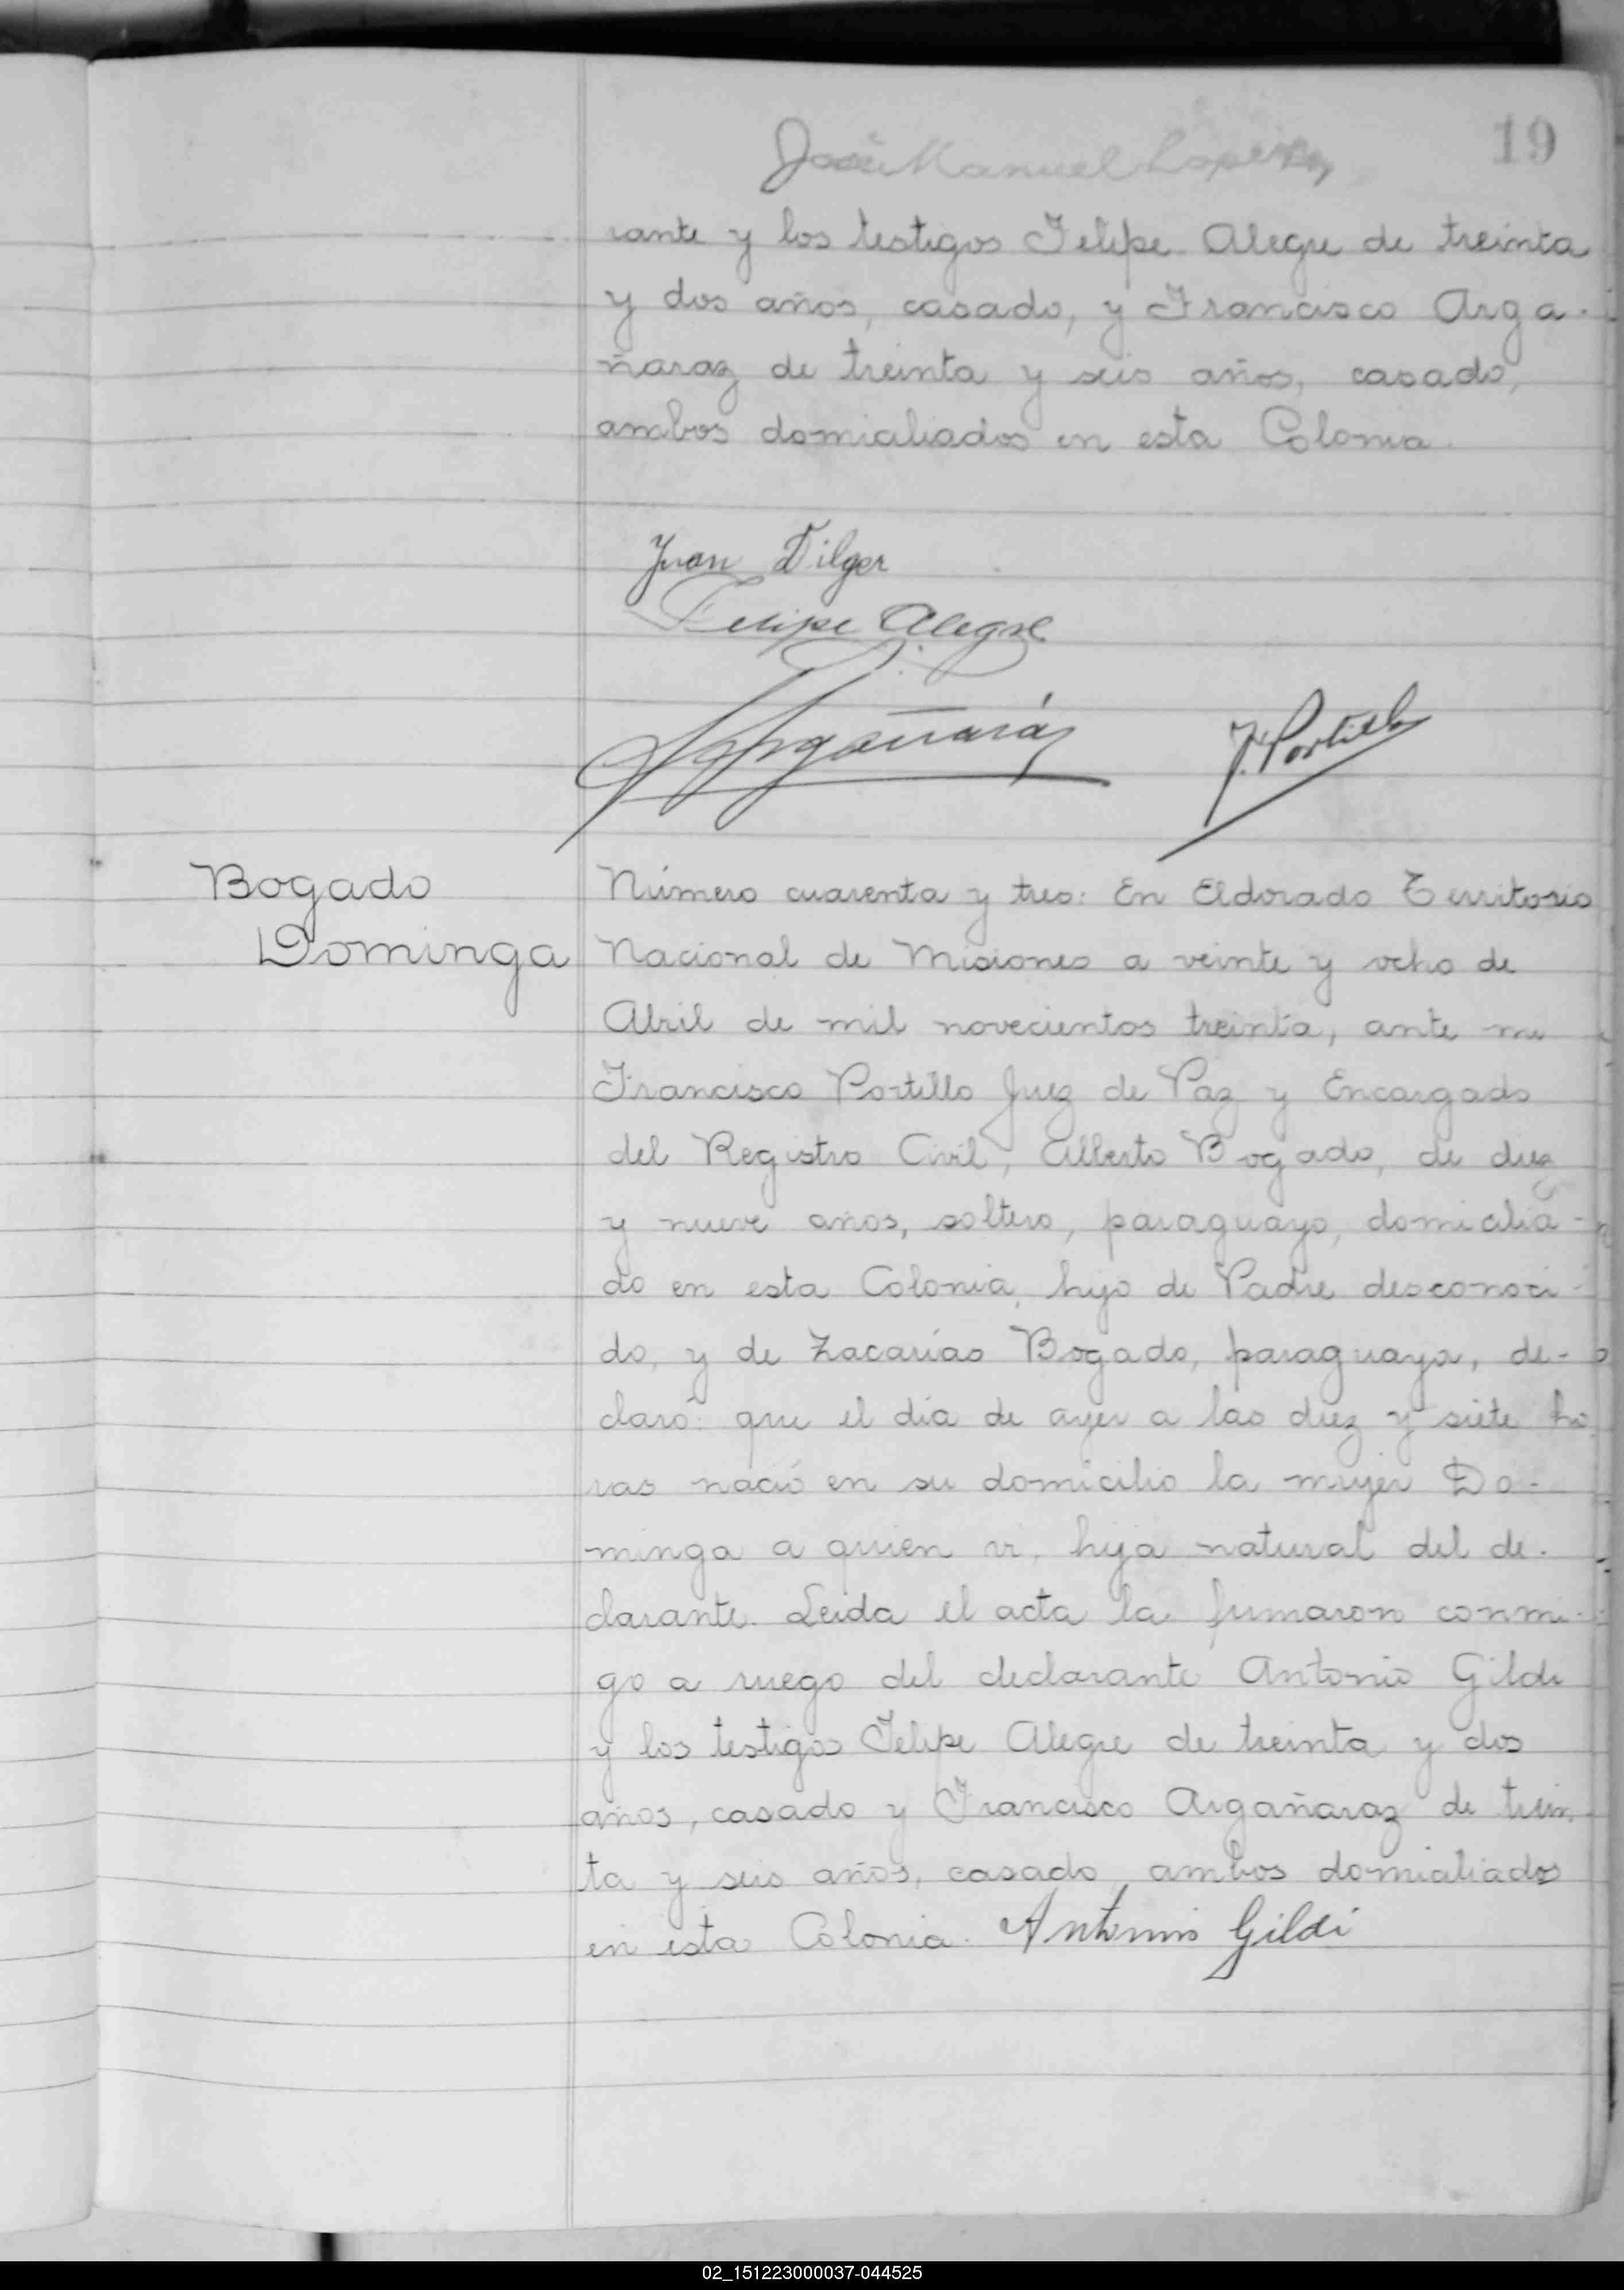 19
José Manuel
rante y los testigos Felipe Alegre de treinta
y dos años, casado, y Francisco Arga-
ñaraz de treinta y seis años, casado,
ambos domiciliados en esta Colonia.
Juan Dilger
Felipe Alegre
Argañaráz
F. Portillo
Bogado
Dominga
Número cuarenta y tres: En Eldorado Territorio
Nacional de Misiones a veinte y ocho de
Abril de mil novecientos treinta, ante mi
Francisco Portillo Juez de Paz y Encargado
del Registro Civil, Alberto Bogado, de diez
y nueve años, soltero, paraguayo, domicilia-
do en esta Colonia, hijo de Padre desconoci-
do, y de Zacarías Bogado, paraguaya, de-
claró: que el día de ayer a las diez y siete ho
ras nació en su domicilio la mujer Do-
minga a quien vi, hija natural del de-
clarante. Leida el acta la firmaron conmi-
go a ruego del declarante Antonio Gildi
y los testigos Felipe Alegre de treinta y dos
años, casado y Francisco Argañaraz de trein
ta y seis años, casado, ambos domiciliados
en esta Colonia. Antonio Gildi
02_151223000037-044525